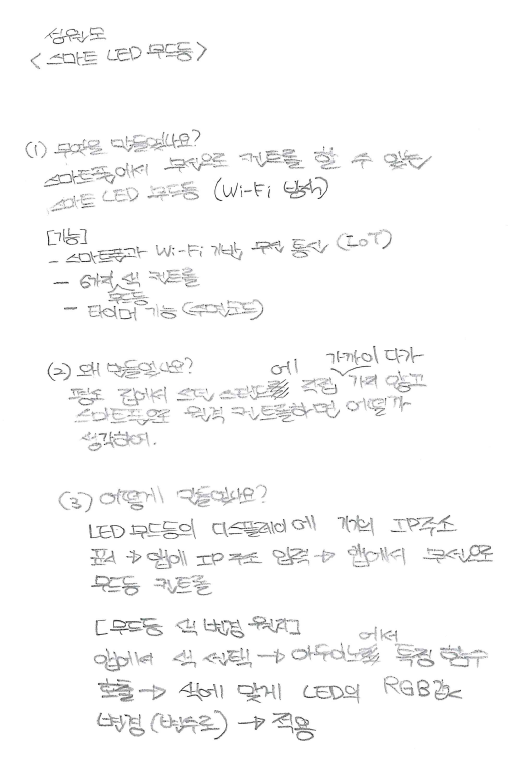 심원모
<스마트 LED 무드등>
(1) 무엇을 만들었나요?
스마트폰에서 무선으로 컨트롤 할 수 있는
스마트 LED 무드등 (Wi-Fi 방식)
[기능]
- 스마트폰과 Wi-Fi 기반 무선 통신 (IoT)
- 6가지 색 컨트롤
무드등
- 타이머 기능 (수면모드)
(2) 왜 만들었나요? 에 가까이 다가
평소 집에서 스탠드를 직접 가지 않고
스마트폰으로 원격 컨트롤하면 어떨까
생각하여.
(3) 어떻게 만들었나요?
LED 무드등의 디스플레이에 기기의 IP주소
표시 → 앱에 IP 주소 입력 → 앱에서 무선으로
무드등 컨트롤
[무드등 색 변경 원리]
에서
앱에서 색 선택 → 아두이노를 특정 함수
호출 → 색에 맞게 LED의 RGB값
변경 (변수로) → 적용